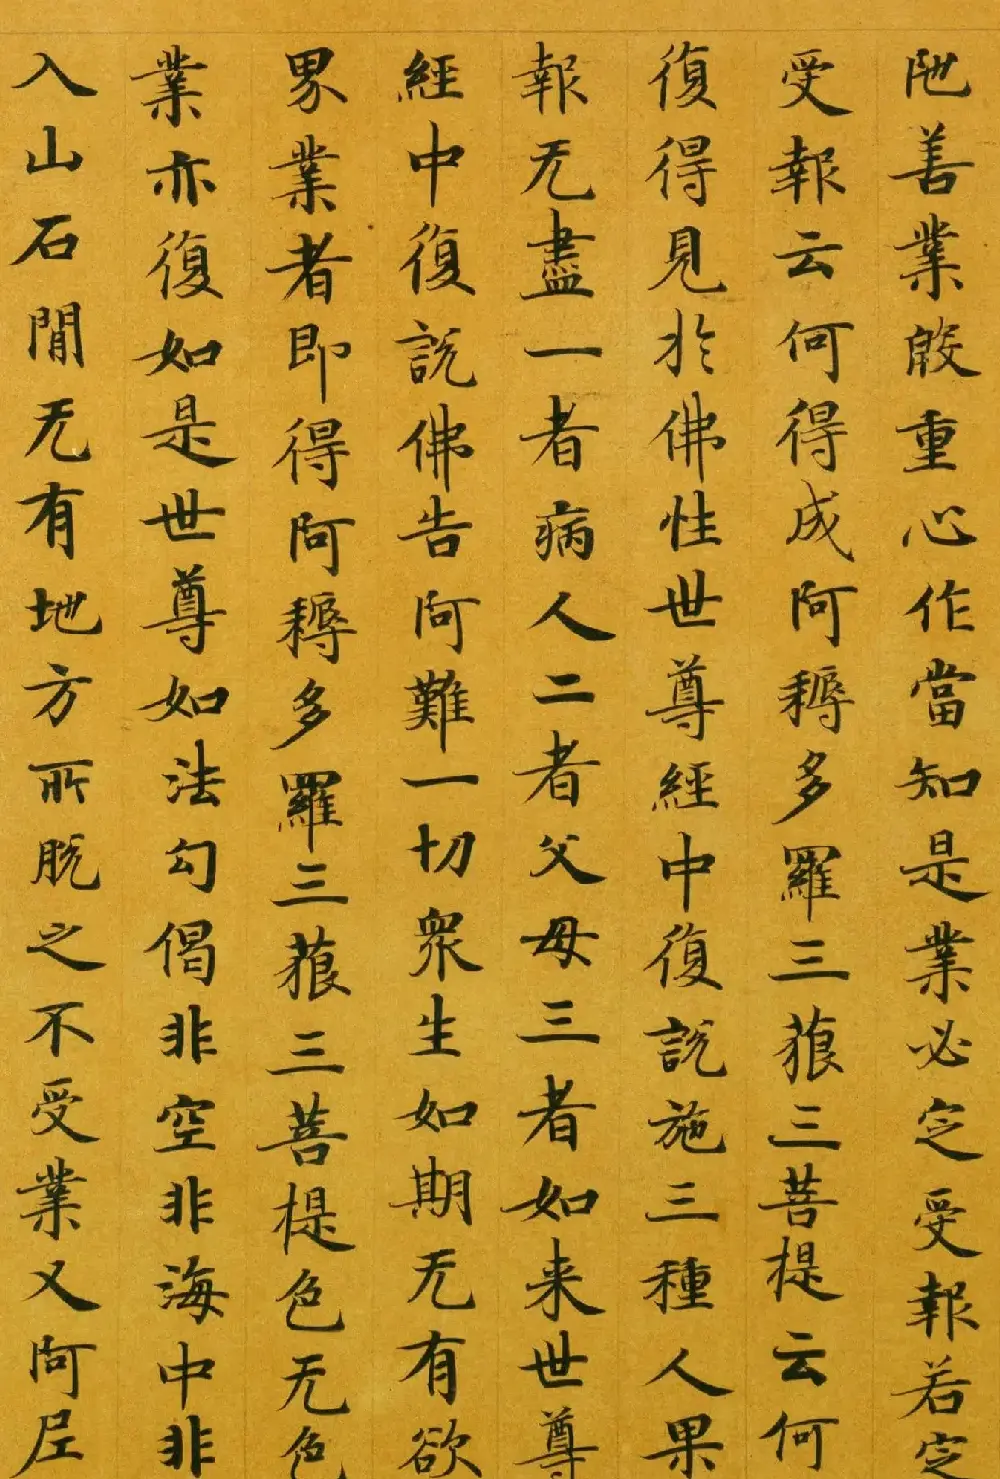 阤善業慇重心作當知是業必定受報若定
受報云何得成阿耨多羅三藐三菩提云何
復得見於佛性世尊經中復說施三種人果
報无盡一者病人二者父母三者如来世尊
經中復說佛告阿難一切眾生如期无有欲
界業者即得阿耨多羅三藐三菩提色无色
業亦復如是世尊如法勾偈非空非海中非
入山石閒无有地方所脫之不受業又阿𡰱